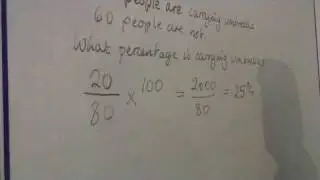 people are carrying umbrellas
60 people are not.
What percentage is carrying umbrellas
20/80 × 100 = 2000/80 = 25%